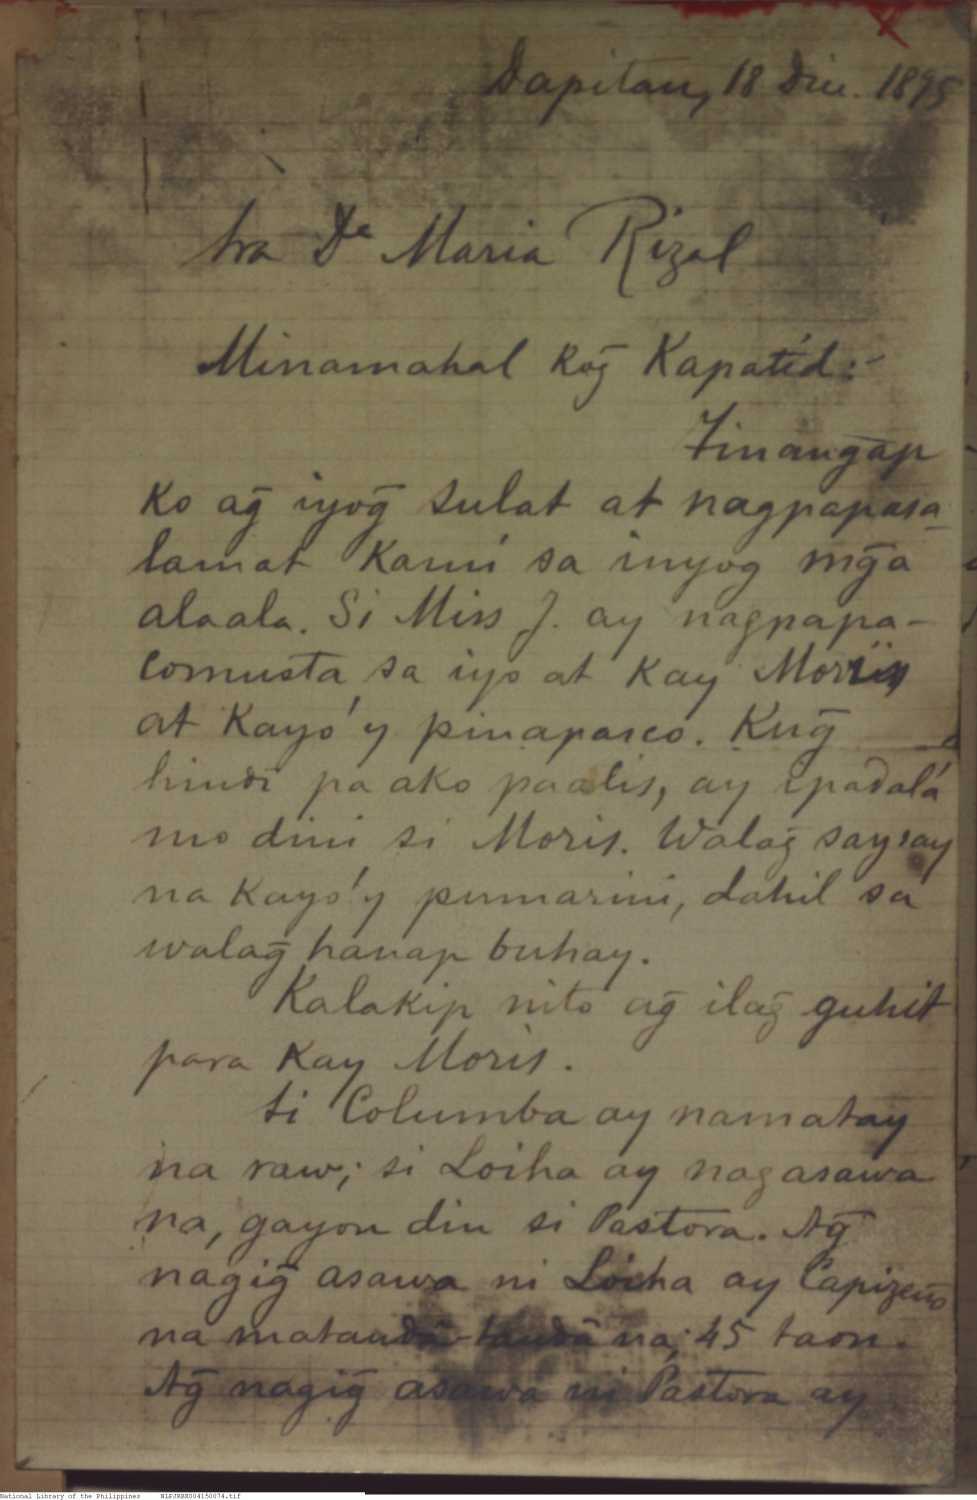 Dapitan, 18 Dic. 1895
Sra Dª Maria Rizal
Minamahal kog̃ Kapatíd:-
Tinangap
ko ag̃ iyog̃ sulat at nagpapasa-
lamat kamí sa inyog mg̃a
alaala. Si Miss J. ay nagpapa-
comusta sa iyo at kay Moris
at kayo'y pinapasco. Kug̃
hindi pa ako paalis, ay ipadalá
mo dini si Moris. Walag̃ saysay
na kayo'y pumarini, dahil sa
walag̃ hanap buhay.
Kalakip nito ag̃ ilag̃ guhit
para kay Moris.
Si Columba ay namatay
na raw; si Loiha ay nagasawa
na, gayon din si Pastora. Ag̃
nagig̃ asawa ni Loiha ay Capizeño
na matandâ-tandâ na; 45 taon.
Ag̃ nagig̃ asawa ni Pastora ay
National Library of the Philippines NLPJRBX004150074.tif